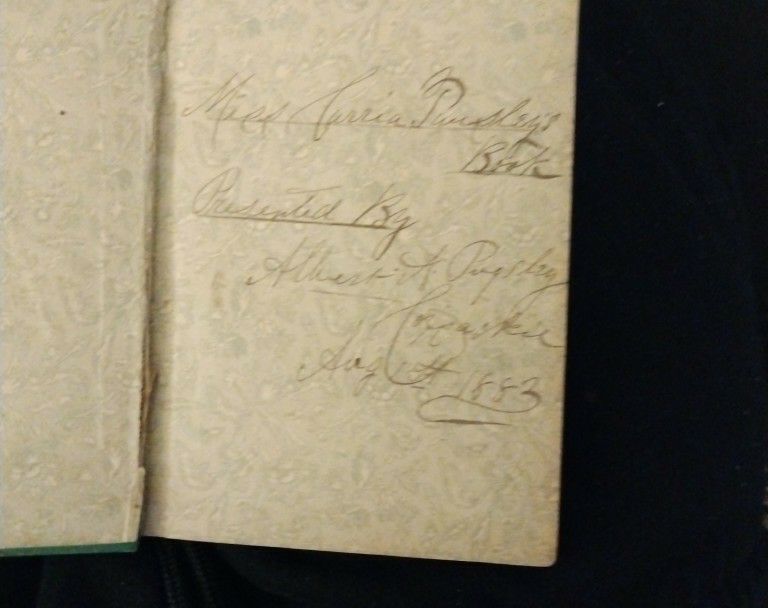 Miss Carria Pundley's
Book
Presented By
Albert A Pugsley
Coxsackie
Aug 1st 1883